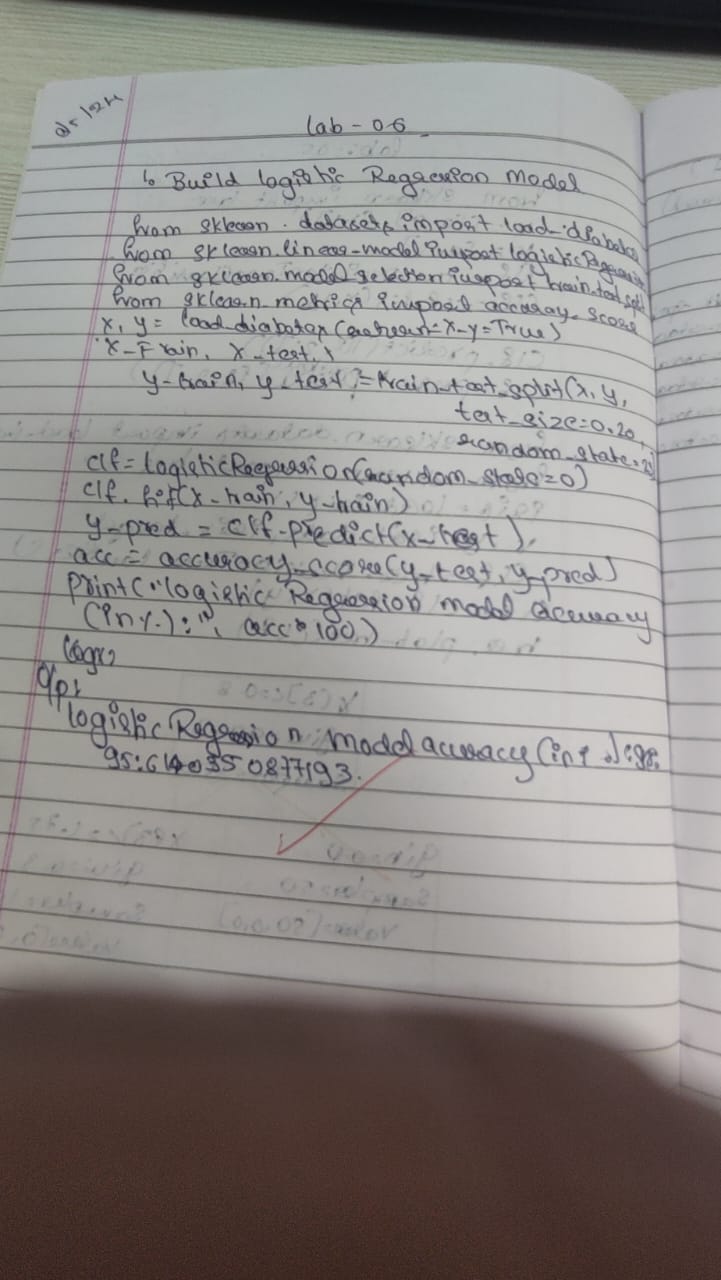 Lab-06
6 Build logistic Regression Model
from sklearn.datasets import load-diabetes
from sklearn.linear-model import logisticRegression
from sklearn.model selection import train-test split
from sklearn.metrics import accuracy-score
x, y = load_diabetes(return-x-y=True)
x-Train, x-test,
y-train, y-test = train-test-split(x, y,
test-size=0.20,
random-state=23)
clf = logisticRegression(random-state=0)
clf.fit(x-train, y-train)
y-pred = clf.predict(x-test)
acc = accuracy-score(y-test, y-pred)
Print("logistic Regression model accuracy
(in%):", acc*100)
O/p:
logistic Regression model accuracy (in
95.6140350877193.